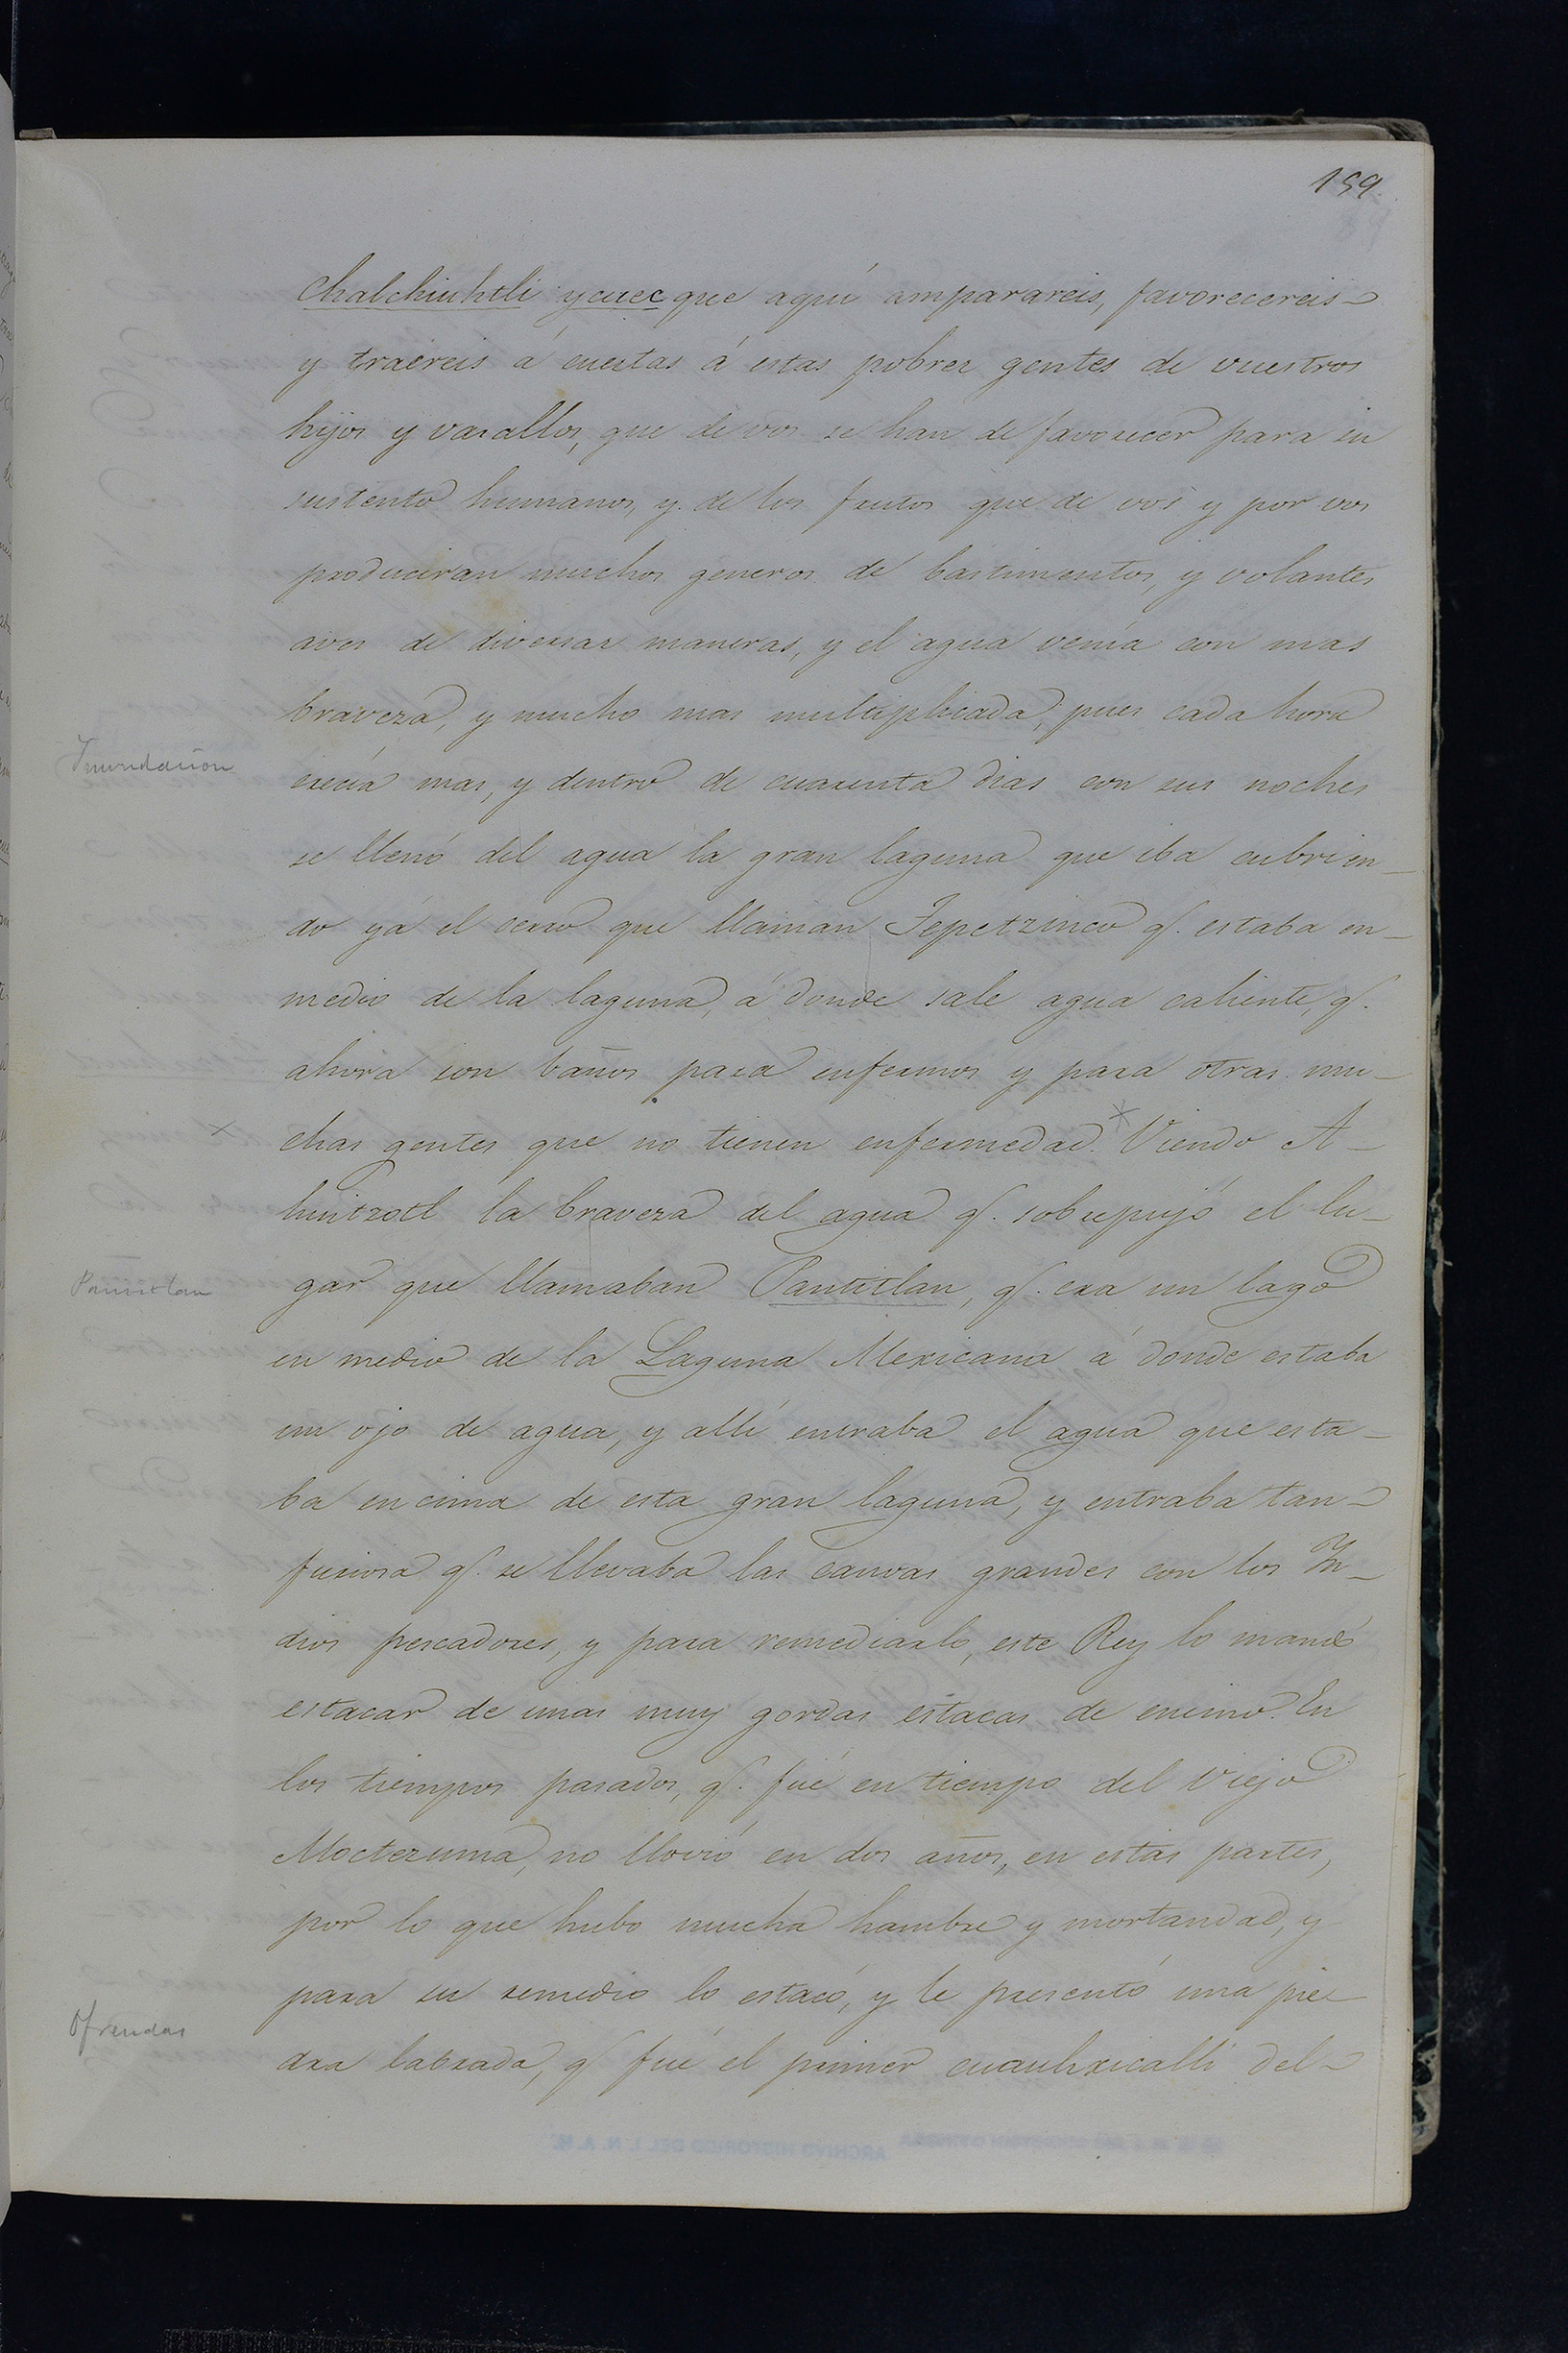 159.
Chalchiuhtli ycuec que aquí amparareis, favorecereis
y traereis á cuestas á estas pobres gentes de vuestros
hijos y vasallos, que de vos se han de favorecer para su
sustento humanos, y de los frutos que de vos y por vos
produciran muchos generos de bastimentos, y volantes
aves de diversas maneras, y el agua venía con mas
braveza, y mucho mas multiplicada, pues cada hora
Inundacion
crecía mas, y dentro de cuarenta dias con sus noches
se llenó del agua la gran laguna que iba cubrien-
do yá el cerro que llaman Tepetzinco q. estaba en-
medio de la laguna, á donde sale agua caliente, q.
ahora son baños para enfermos y para otras mu-
x chas gentes que no tienen enfermedad.* Viendo A-
huitzotl la braveza del agua q. sobrepujó el lu-
Pantitlan
gar que llamaban Pantitlan, q. era un lago
en medio de la Laguna Mexicana á donde estaba
un ojo de agua, y allí entraba el agua que esta-
ba encima de esta gran laguna, y entraba tan
furiosa q. se llevaba las canoas grandes con los In-
dios pescadores, y para remediarlo, este Rey lo mandó
estacar de unas muy gordas estacas de encino. En
los tiempos pasados, q. fué en tiempo del Viejo
Moctezuma, no llovió en dos años, en estas partes,
por lo que hubo mucha hambre y mortandad, y
para su remedio lo estacó, y le presentó una pie
Ofrendas
dra labrada, q. fué el primer cuauhxicalli del